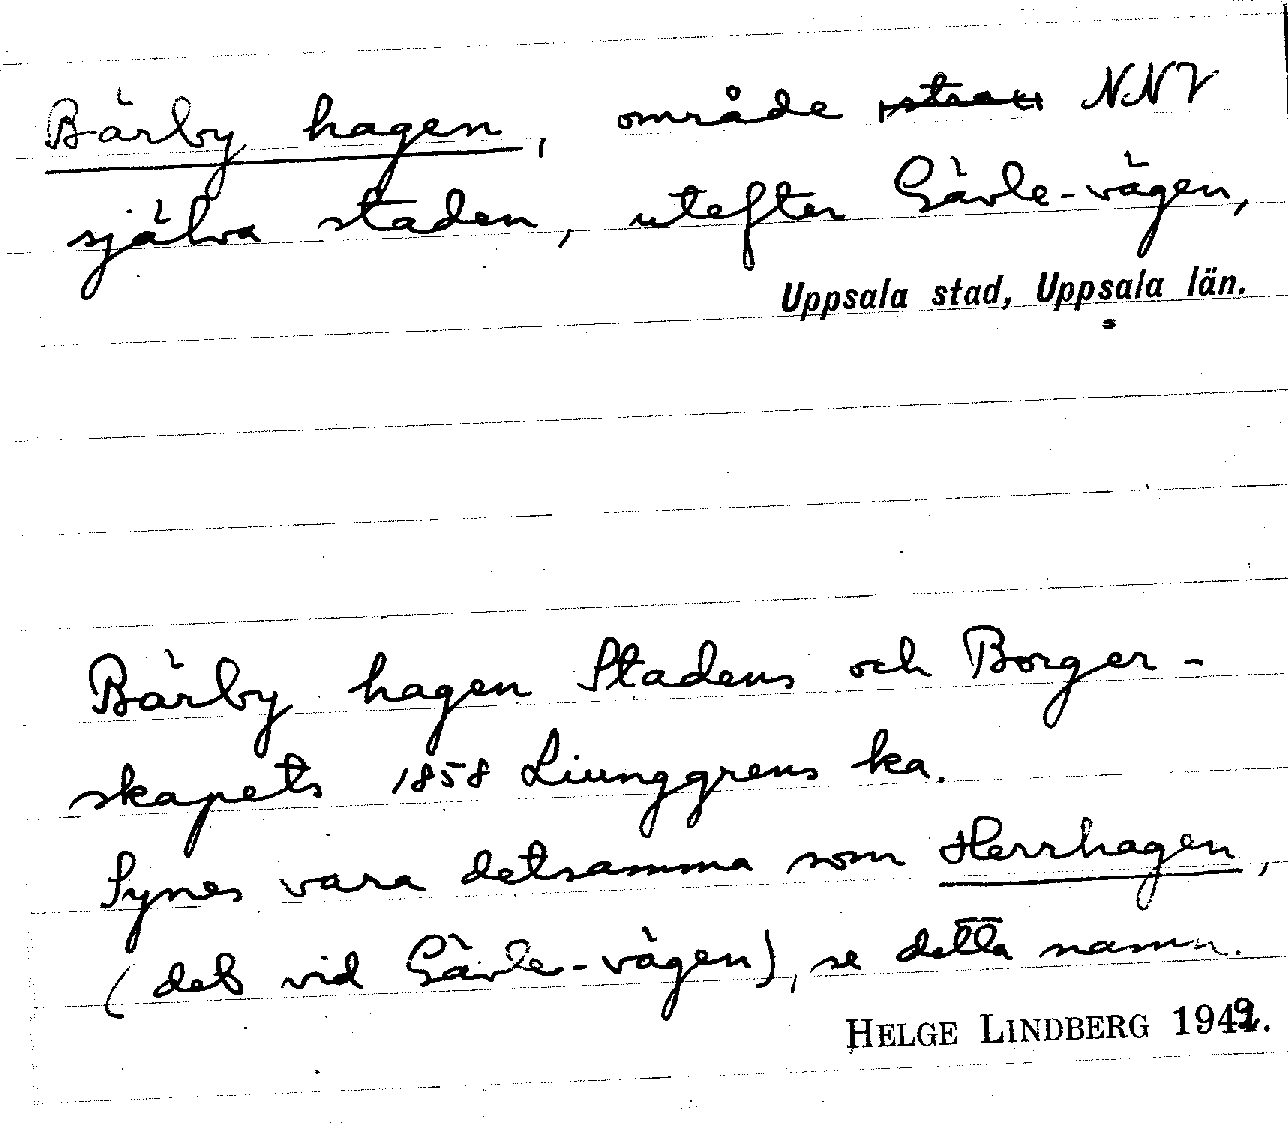 Bärby hagen, område NNV
själva staden, utefter Gävle-vägen,
Uppsala stad, Uppsala län.
Bärby hagen Stadens och Borger-
skapets 1858 Liunggrens ka.
Synes vara detsamma som Herrhagen,
(det vid Gävle-vägen), se detta namn.
HELGE LINDBERG 1949.